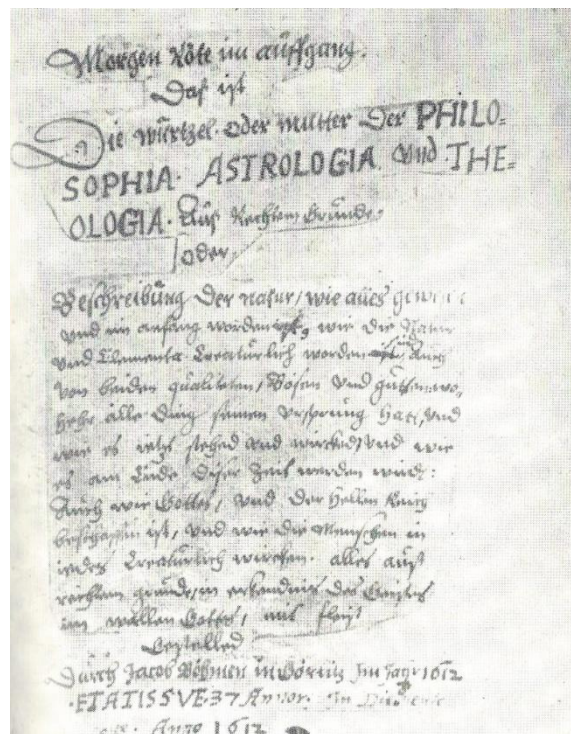 Morgen Röte im auffgang.
Das ist
Die würtzel oder mutter der PHILO=
SOPHIA. ASTROLOGIA. und THE=
OLOGIA. Auß Rechtem Grunde.
oder
Beschreibung der natur / wie alles
vnd im anfang worden, wie die Natur
vnd Elementa Creatürlich worden Auch
von beiden qualiteten, Bösen vnd gutten wo,
hehr alle ding seinen vrsprung hatt, vnd
wie es ietzt stehed vnd wircked, vnd wie
es am Ende diser Zeit werden wird:
Auch wie Gottes, vnd der Hellen Reich
beschaffen ist, vnd wie die Menschen in
iedes Creatürlich wircken. alles auß
rechtem grunde, in erkendnis des Geistes
im wallen Gottes, mit fleiß
Gestelled
Durch Jacob Böhmen in Görlitz Im Jahr 1612
ETATIS SVE. 37 In
Anno 1612